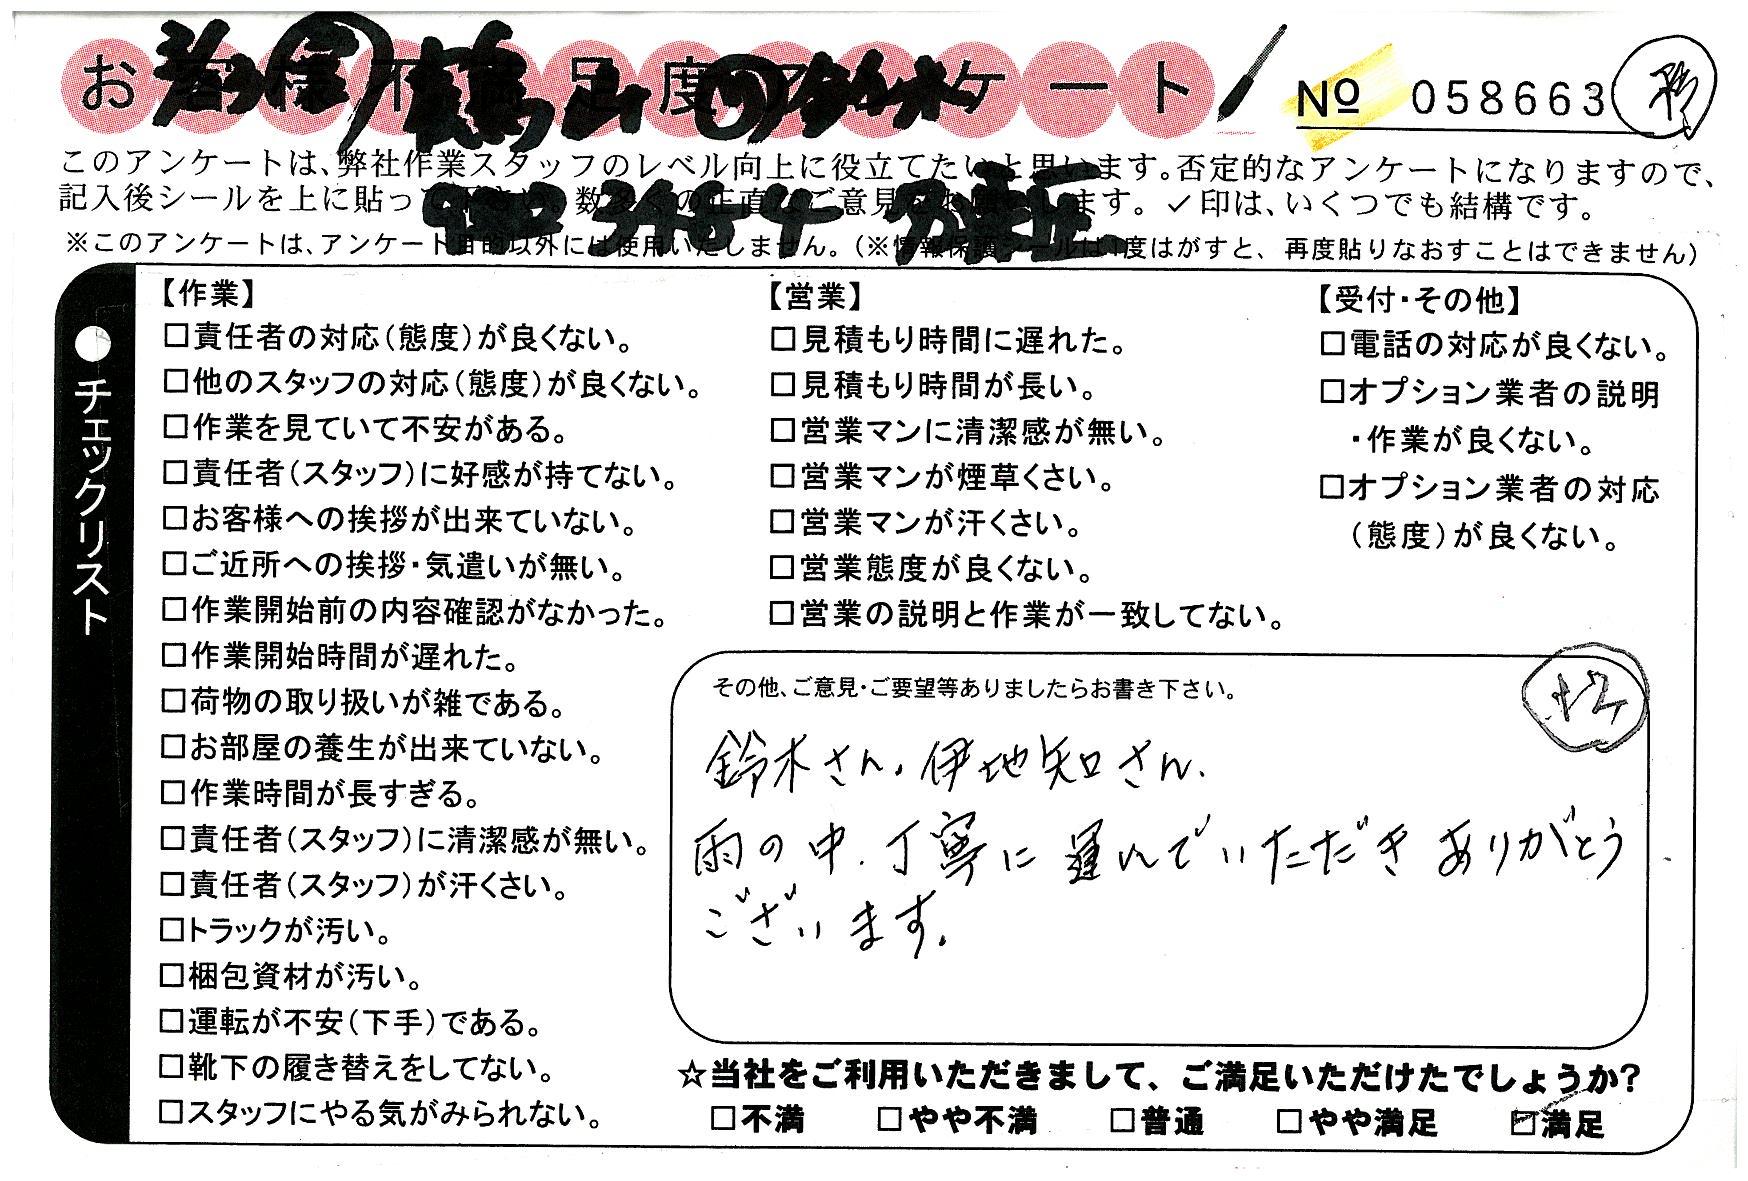 お客様不満足度アンケート
№ 058663
このアンケートは、弊社作業スタッフのレベル向上に役立てたいと思います。否定的なアンケートになりますので、
記入後シールを上に貼って下さい。数多くの正直なご意見をお願いします。✓印は、いくつでも結構です。
※このアンケートは、アンケート目的以外には使用いたしません。(※情報保護シールは1度はがすと、再度貼りなおすことはできません)
●チェックリスト
【作業】
□責任者の対応(態度)が良くない。
□他のスタッフの対応(態度)が良くない。
□作業を見ていて不安がある。
□責任者(スタッフ)に好感が持てない。
□お客様への挨拶が出来ていない。
□ご近所への挨拶・気遣いが無い。
□作業開始前の内容確認がなかった。
□作業開始時間が遅れた。
□荷物の取り扱いが雑である。
□お部屋の養生が出来ていない。
□作業時間が長すぎる。
□責任者(スタッフ)に清潔感が無い。
□責任者(スタッフ)が汗くさい。
□トラックが汚い。
□梱包資材が汚い。
□運転が不安(下手)である。
□靴下の履き替えをしてない。
□スタッフにやる気がみられない。
【営業】
□見積もり時間に遅れた。
□見積もり時間が長い。
□営業マンに清潔感が無い。
□営業マンが煙草くさい。
□営業マンが汗くさい。
□営業態度が良くない。
□営業の説明と作業が一致してない。
【受付・その他】
□電話の対応が良くない。
□オプション業者の説明
・作業が良くない。
□オプション業者の対応
(態度)が良くない。
その他、ご意見・ご要望等ありましたらお書き下さい。
鈴木さん、伊地知さん、
雨の中、丁寧に運んでいただきありがとう
ございます。
☆当社をご利用いただきまして、ご満足いただけたでしょうか?
□不満 □やや不満 □普通 □やや満足 ☑満足